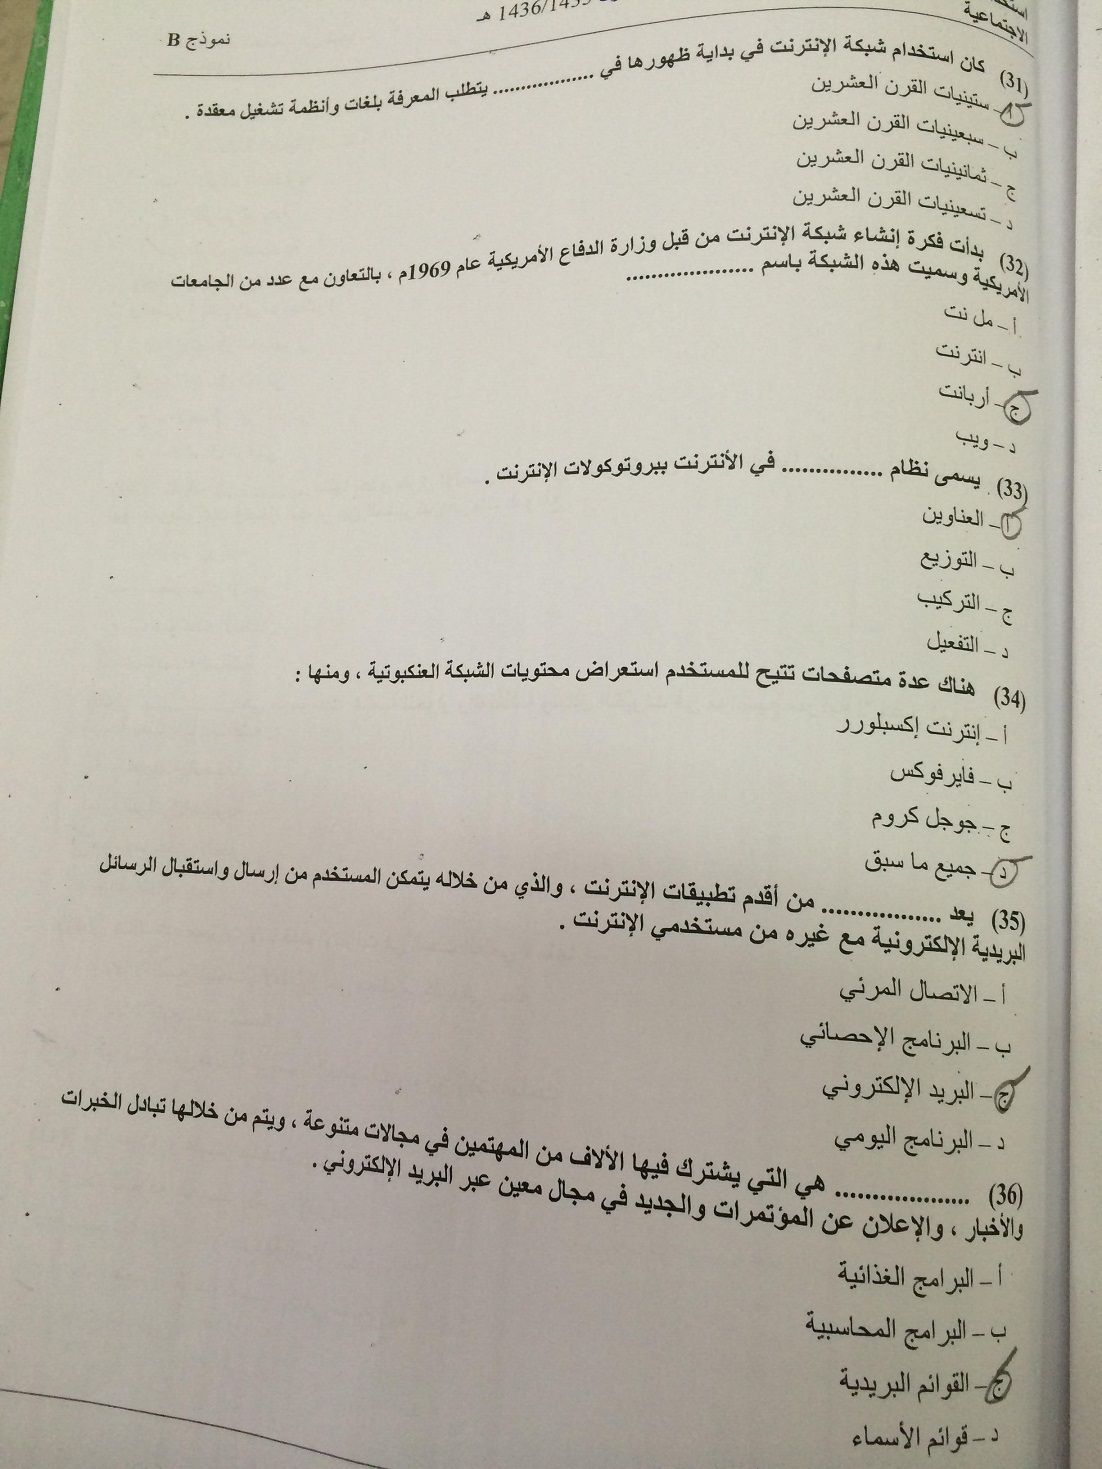 الاجتماعية
1436/1435 هـ
نموذج B
(31) كان استخدام شبكة الإنترنت في بداية ظهورها في ............... يتطلب المعرفة بلغات وأنظمة تشغيل معقدة .
أ – ستينيات القرن العشرين
ب – سبعينيات القرن العشرين
ج – ثمانينيات القرن العشرين
د – تسعينيات القرن العشرين
(32) بدأت فكرة إنشاء شبكة الإنترنت من قبل وزارة الدفاع الأمريكية عام 1969م ، بالتعاون مع عدد من الجامعات
الأمريكية وسميت هذه الشبكة باسم ...................
أ – مل نت
ب – انترنت
ج – أربانت
د – ويب
(33) يسمى نظام ............... في الأنترنت ببروتوكولات الإنترنت .
أ – العناوين
ب – التوزيع
ج – التركيب
د – التفعيل
(34) هناك عدة متصفحات تتيح للمستخدم استعراض محتويات الشبكة العنكبوتية ، ومنها :
أ – إنترنت إكسبلورر
ب – فايرفوكس
ج – جوجل كروم
د – جميع ما سبق
(35) يعد ................. من أقدم تطبيقات الإنترنت ، والذي من خلاله يتمكن المستخدم من إرسال واستقبال الرسائل
البريدية الإلكترونية مع غيره من مستخدمي الإنترنت .
أ – الاتصال المرئي
ب – البرنامج الإحصائي
ج – البريد الإلكتروني
د – البرنامج اليومي
(36) .................. هي التي يشترك فيها الألاف من المهتمين في مجالات متنوعة ، ويتم من خلالها تبادل الخبرات
والأخبار ، والإعلان عن المؤتمرات والجديد في مجال معين عبر البريد الإلكتروني .
أ – البرامج الغذائية
ب – البرامج المحاسبية
ج – القوائم البريدية
د – قوائم الأسماء